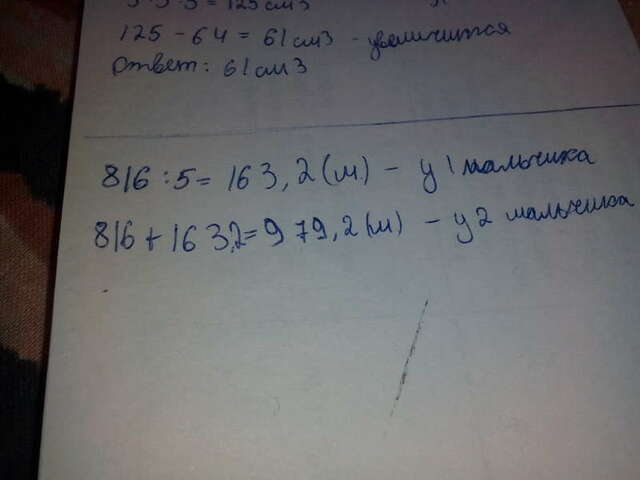 5·5·5 = 125 см3
125 - 64 = 61 см3 - увеличится
Ответ: 61 см3
816 : 5 = 163,2 (м) - у 1 мальчика
816 + 163,2 = 979,2 (м) - у 2 мальчика